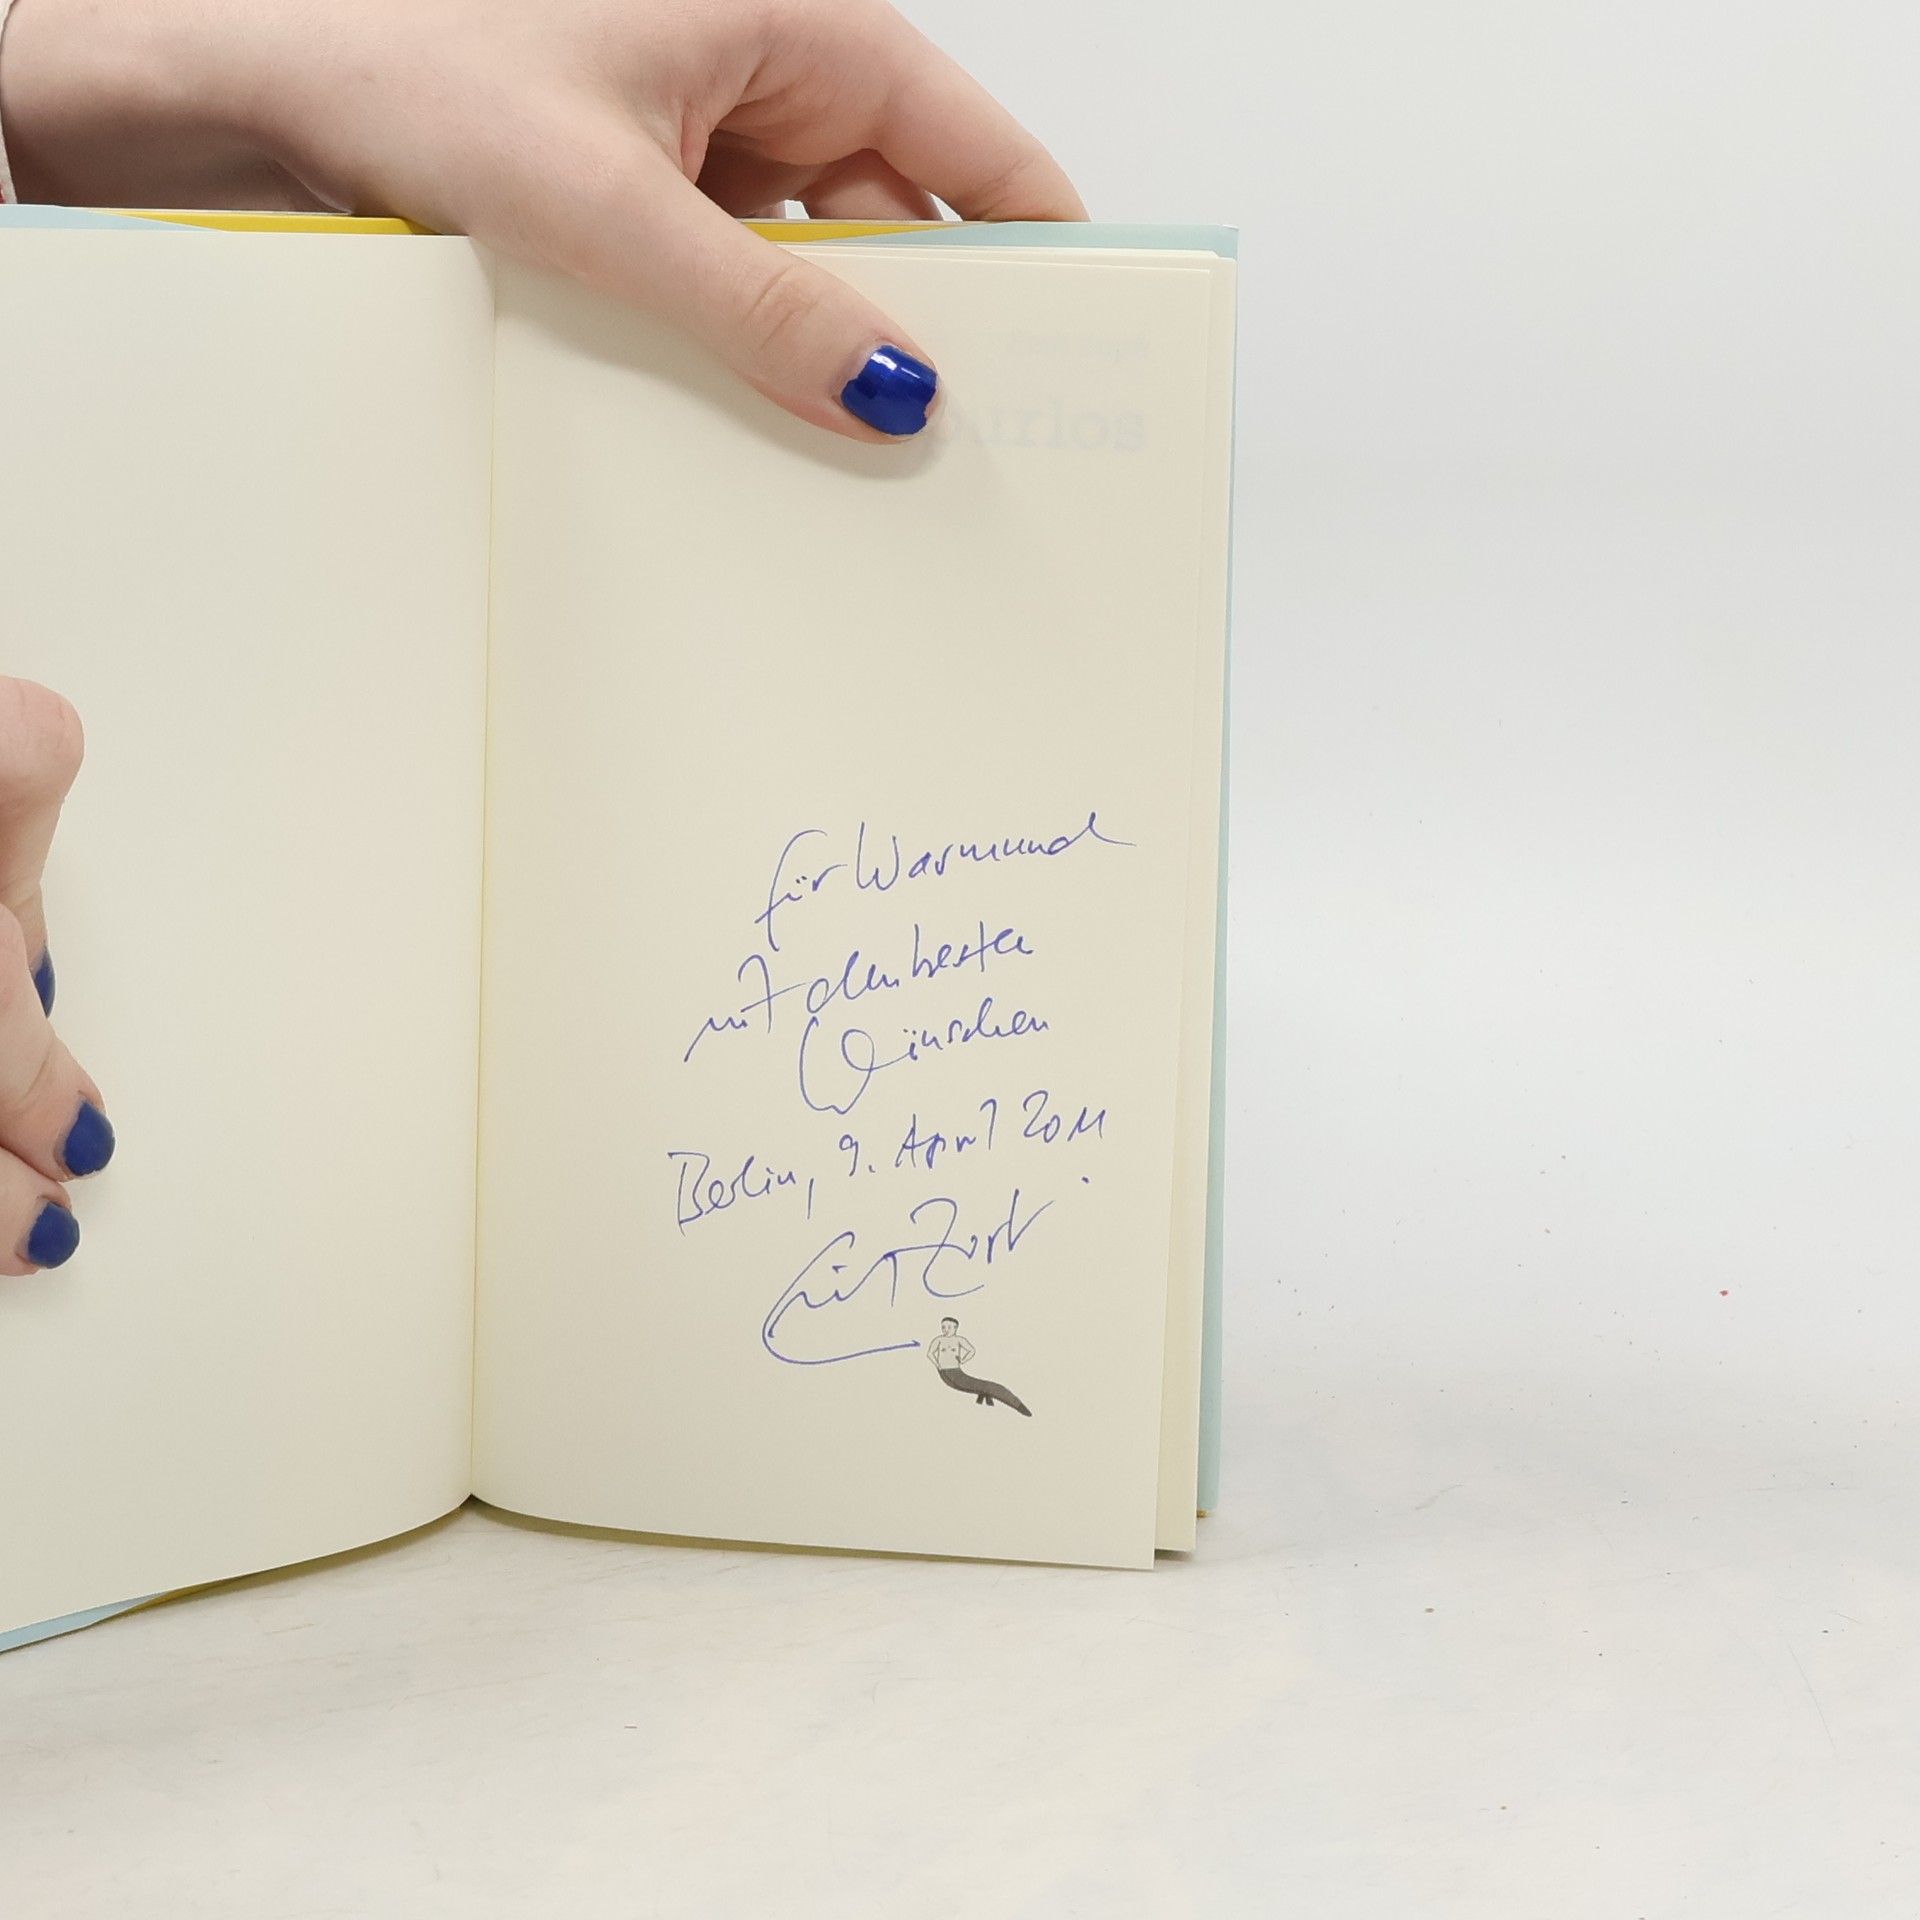 purlos
für Warmund
mit den besten
Wünschen
Berlin, 9. April 2011